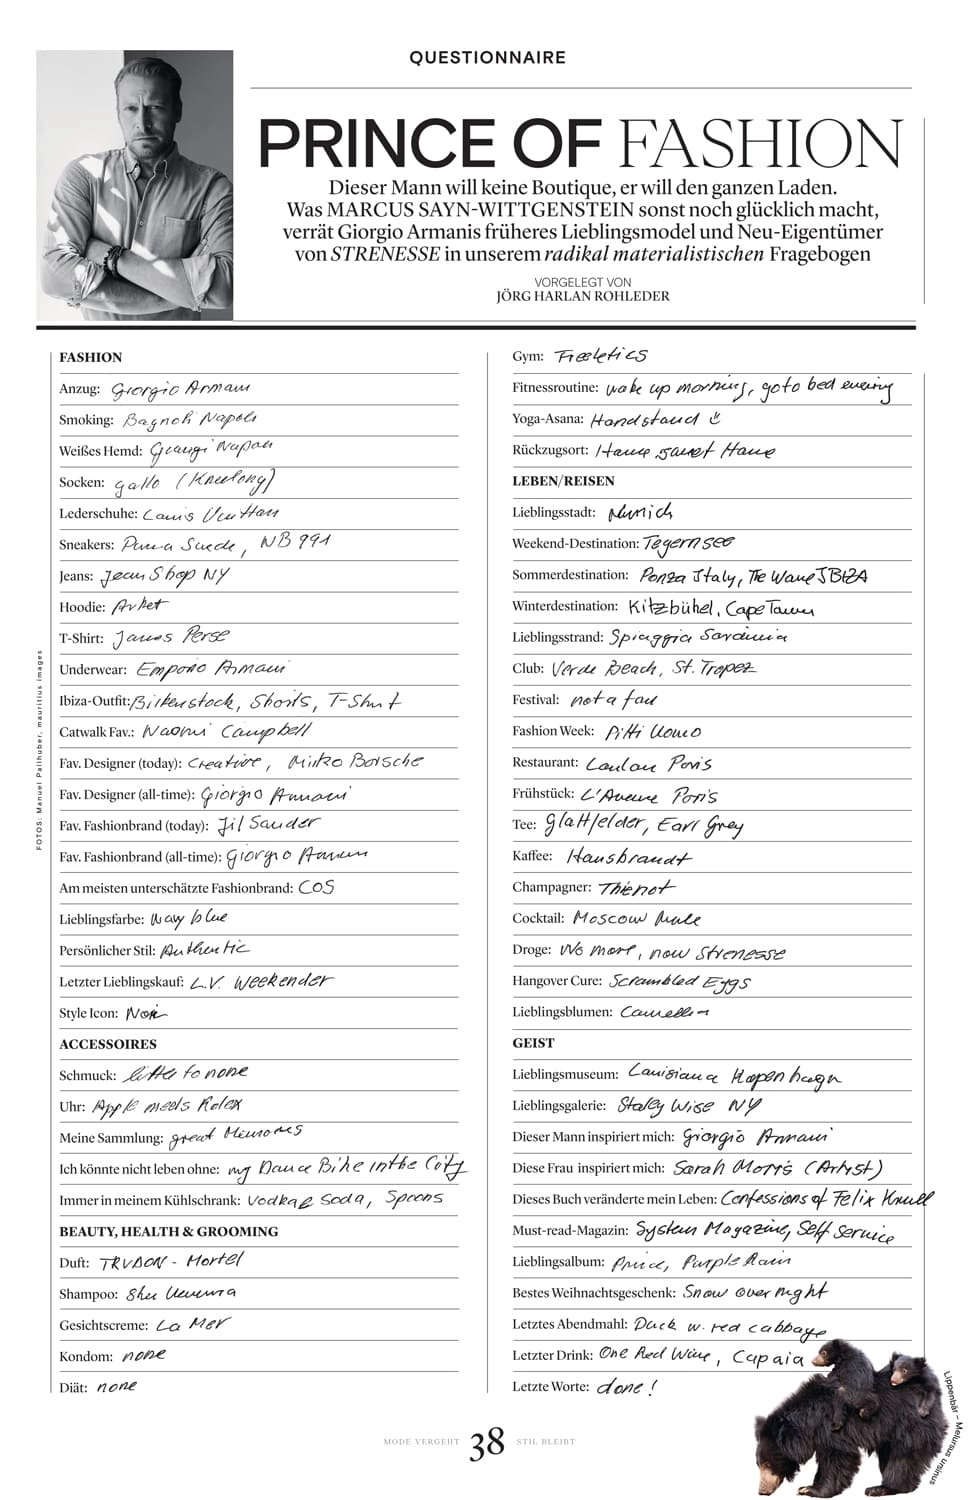 QUESTIONNAIRE
PRINCE OF FASHION
Dieser Mann will keine Boutique, er will den ganzen Laden.
Was MARCUS SAYN-WITTGENSTEIN sonst noch glücklich macht,
verrät Giorgio Armanis früheres Lieblingsmodel und Neu-Eigentümer
von STRENESSE in unserem radikal materialistischen Fragebogen
VORGELEGT VON
JÖRG HARLAN ROHLEDER
FASHION
Anzug: Giorgio Armani
Smoking: Bagnoli Napoli
Weißes Hemd: Napoli
Socken: gallo (Kneelong)
Lederschuhe: Louis Vuitton
Sneakers: Puma Suede, NB 991
Jeans: Jean Shop NY
Hoodie: Arket
T-Shirt: James Perse
Underwear: Emporio Armani
Ibiza-Outfit: Birkenstock, Shorts, T-Shirt
Catwalk Fav.: Naomi Campbell
Fav. Designer (today): Creative, Mirko Borsche
Fav. Designer (all-time): Giorgio Armani
Fav. Fashionbrand (today): Jil Sander
Fav. Fashionbrand (all-time): Giorgio Armani
Am meisten unterschätzte Fashionbrand: COS
Lieblingsfarbe: Navy blue
Persönlicher Stil: Authentic
Letzter Lieblingskauf: L.V. Weekender
Style Icon:
ACCESSOIRES
Schmuck: little to none
Uhr: Apple meets Rolex
Meine Sammlung: great Memories
Ich könnte nicht leben ohne: my Dance Bike in the City
Immer in meinem Kühlschrank: Vodka & Soda, Spoons
BEAUTY, HEALTH & GROOMING
Duft: TRUDON - Mortel
Shampoo: Susanne
Gesichtscreme: La Mer
Kondom: none
Diät: none
Gym: Freeletics
Fitnessroutine: wake up morning, go to bed evening
Yoga-Asana: Handstand
Rückzugsort: Home sweet Home
LEBEN/REISEN
Lieblingsstadt: Munich
Weekend-Destination: Tegernsee
Sommerdestination: Ponza Italy, The Wave IBIZA
Winterdestination: Kitzbühel, Cape Town
Lieblingsstrand: Spiaggia Sardinia
Club: Verde Beach, St. Tropez
Festival: not a fan
Fashion Week: Pitti Uomo
Restaurant: Loulou Paris
Frühstück: L'Avenue Paris
Tee: Glattfelder, Earl Grey
Kaffee: Hausbrandt
Champagner: Thienot
Cocktail: Moscow Mule
Droge: No more, now Strenesse
Hangover Cure: Scrambled Eggs
Lieblingsblumen: Camellia
GEIST
Lieblingsmuseum: Louisiana Kopenhagen
Lieblingsgalerie: Staley Wise NY
Dieser Mann inspiriert mich: Giorgio Armani
Diese Frau inspiriert mich: Sarah Morris (Artist)
Dieses Buch veränderte mein Leben: Confessions of Felix Krull
Must-read-Magazin: System Magazine, Self Service
Lieblingsalbum: Prince, Purple Rain
Bestes Weihnachtsgeschenk: Snow over night
Letztes Abendmahl: Duck w. red cabbage
Letzter Drink: One Red Wine, Capaia
Letzte Worte: done!
FOTOS: Manuel Pallhuber, mauritius images
Lippenbär – Melursus ursinus
MODE VERGEHT 38 STIL BLEIBT